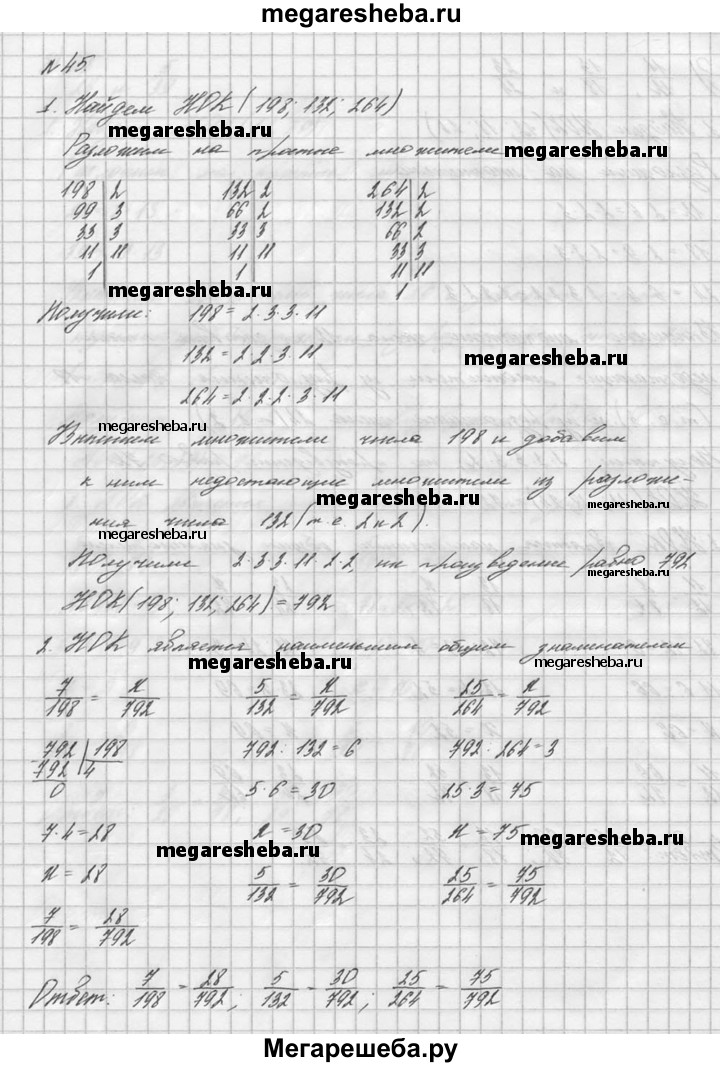 megaresheba.ru
№45.
1. Найдем НОК(198; 132; 264)
megaresheba.ru
Разложим на простые множители
megaresheba.ru
198 | 2 132 | 2 264 | 2
99 | 3 66 | 2 132 | 2
33 | 3 33 | 3 66 | 2
11 | 11 11 | 11 33 | 3
1 | 1 | 11 | 11
1
megaresheba.ru
Получили: 198 = 2·3·3·11
132 = 2·2·3·11
megaresheba.ru
264 = 2·2·2·3·11
megaresheba.ru
Выпишем множители числа 198 и добавим
к ним недостающие множители из разложе-
megaresheba.ru
megaresheba.ru
ния числа 132 (т.е. 2 и 2).
megaresheba.ru
Получили 2·3·3·11·2·2, их произведение равно 792
megaresheba.ru
НОК(198; 132; 264) = 792
2. НОК является наименьшим общим знаминателем
megaresheba.ru
megaresheba.ru
7/198 = x/792 5/132 = x/792 25/264 = x/792
792 | 198 792 : 132 = 6 792 : 264 = 3
792 | 4
0 5·6 = 30 25·3 = 75
7·4 = 28 x = 30 x = 75
megaresheba.ru
megaresheba.ru
x = 28 5/132 = 30/792 25/264 = 75/792
7/198 = 28/792
Ответ: 7/198 = 28/792; 5/132 = 30/792; 25/264 = 75/792
Мегарешеба.ру